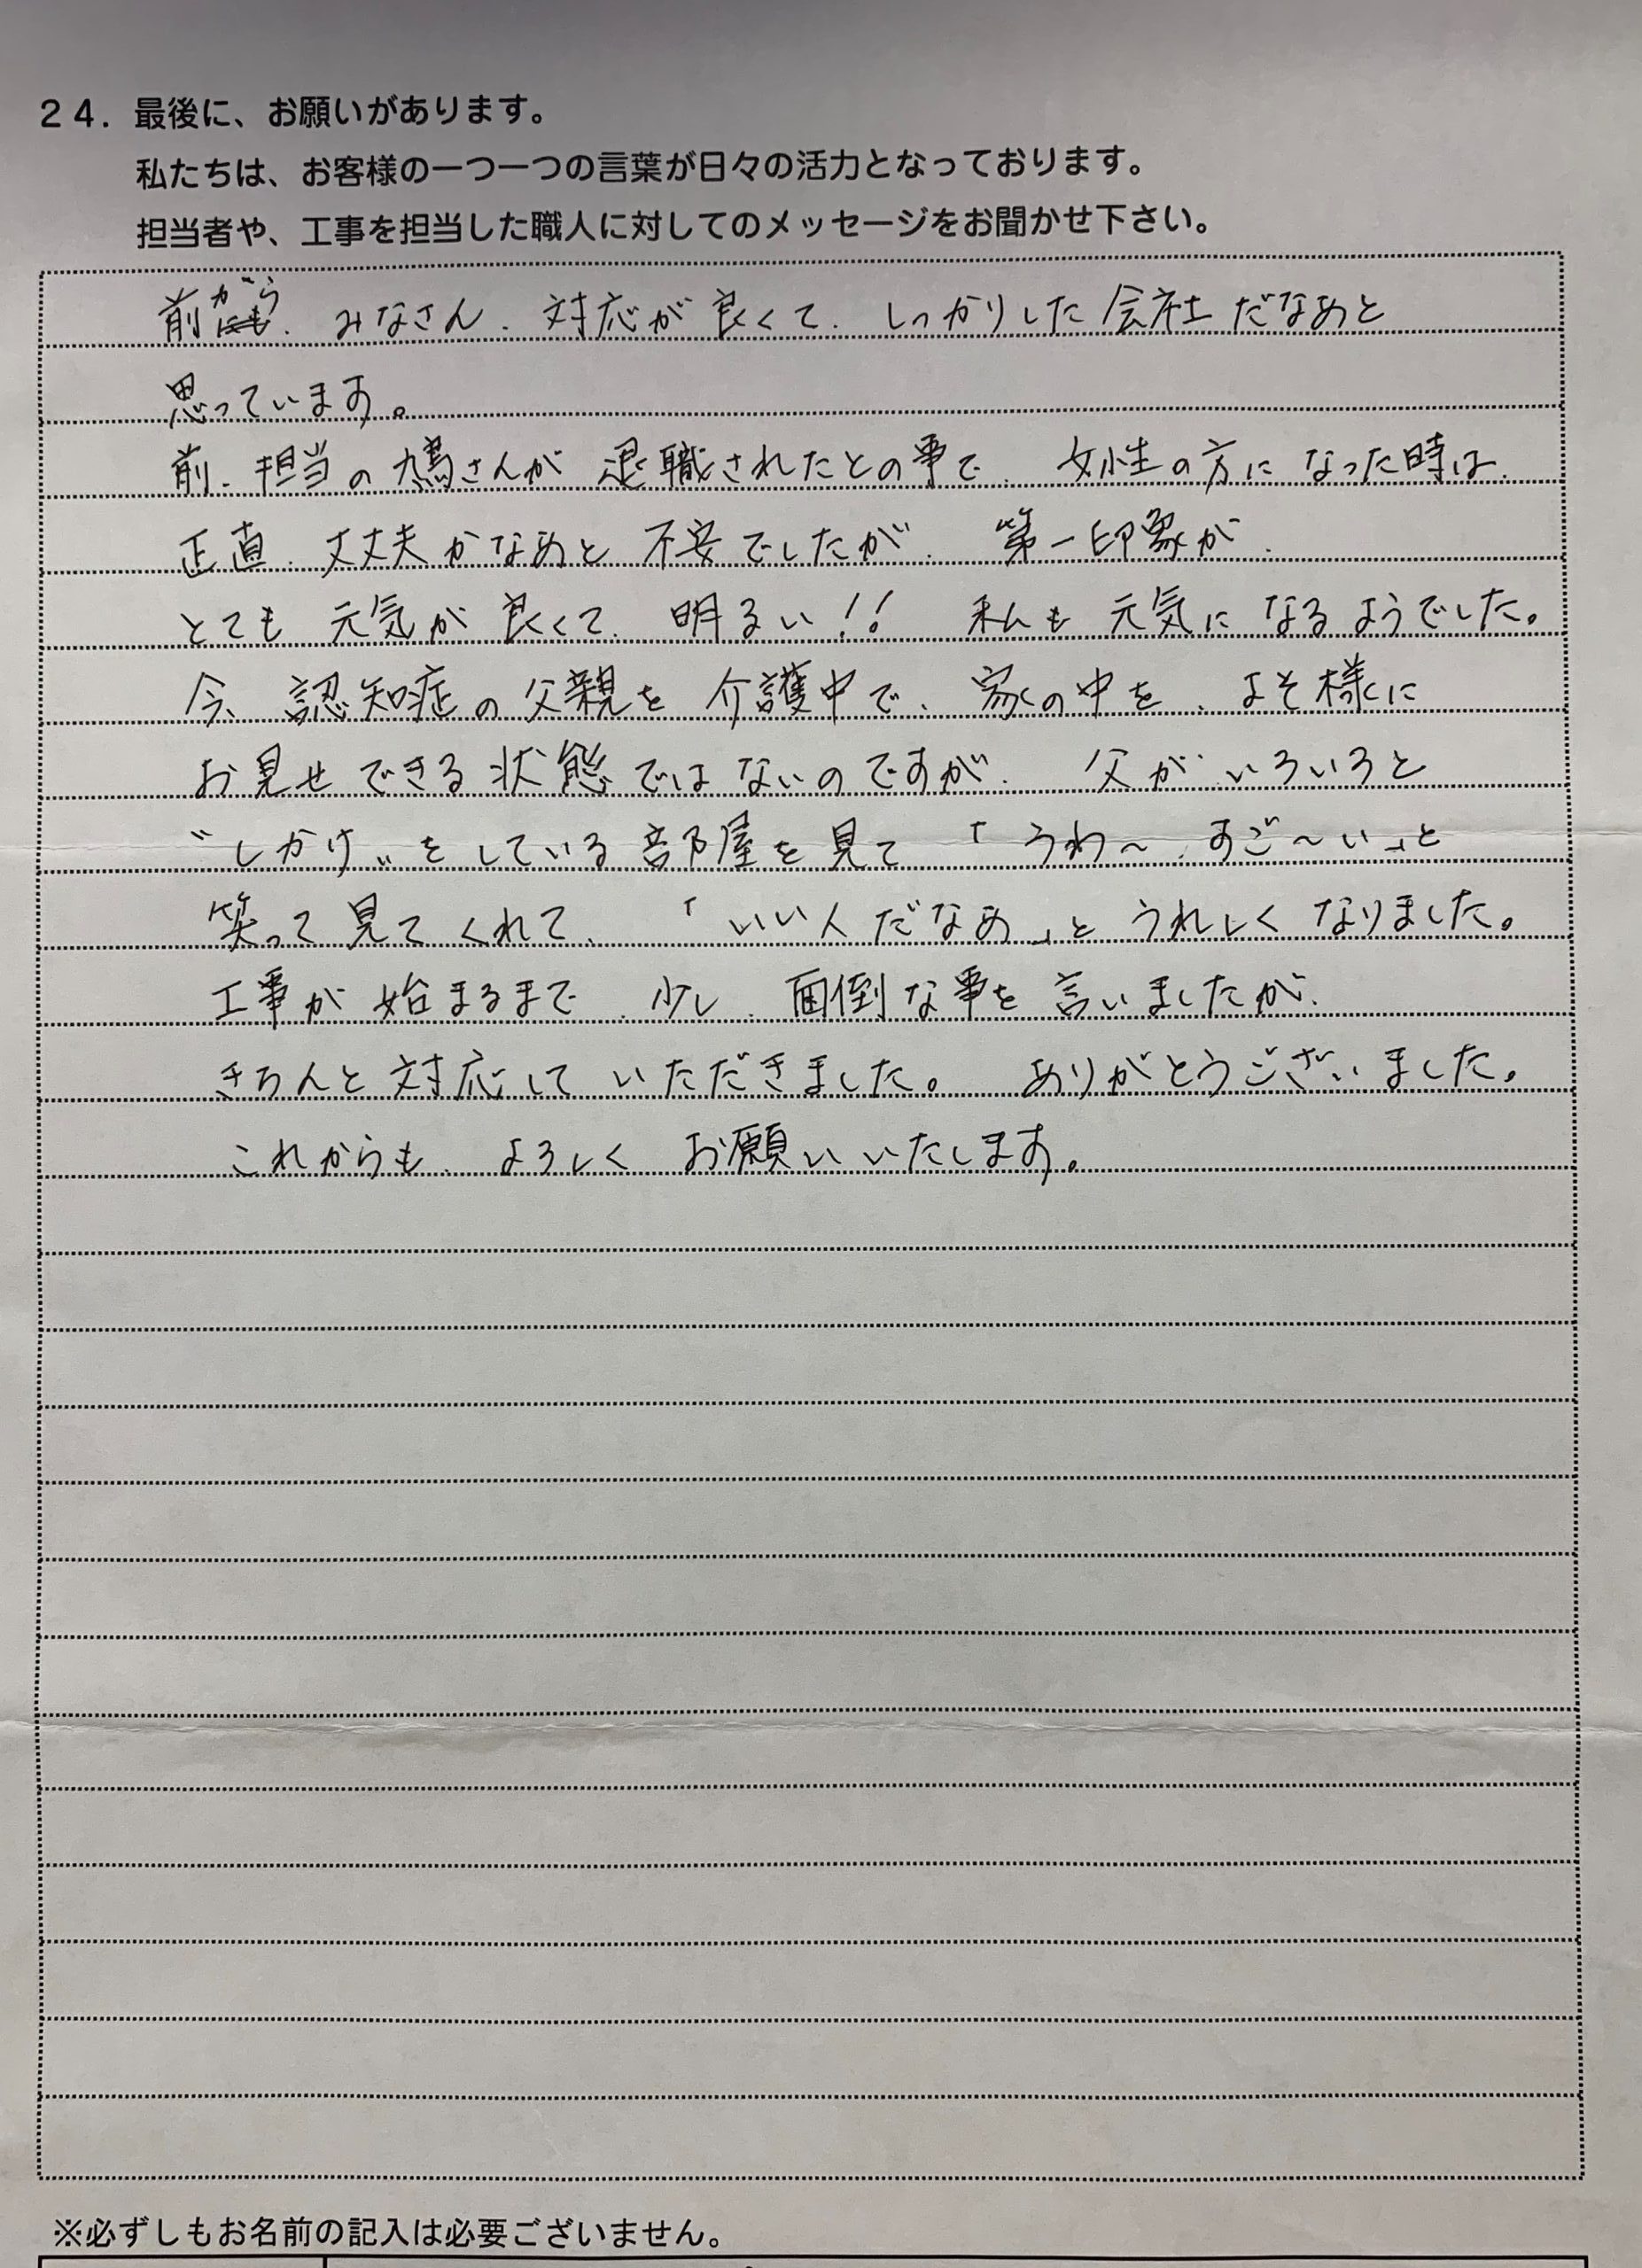 24. 最後に、お願いがあります。
私たちは、お客様の一つ一つの言葉が日々の活力となっております。
担当者や、工事を担当した職人に対してのメッセージをお聞かせ下さい。
前から、みなさん、対応が良くて、しっかりした会社だなあと
思っています。
前、担当のさんが退職されたとの事で、女性の方になった時は、
正直、丈丈夫かなあと不安でしたが、第一印象が、
とても元気が良くて、明るい!! 私も元気になるようでした。
今、認知症の父親を介護中で、家の中を、よそ様に
お見せできる状態ではないのですが、父がいろいろと
〝しかけ〟をしている部屋を見て「うわ〜、すご〜い」と
笑って見てくれて、「いい人だなあ」とうれしくなりました。
工事が始まるまで、少し、面倒な事を言いましたが、
きちんと対応していただきました。ありがとうございました。
これからも、よろしくお願いいたします。
※必ずしもお名前の記入は必要ございません。